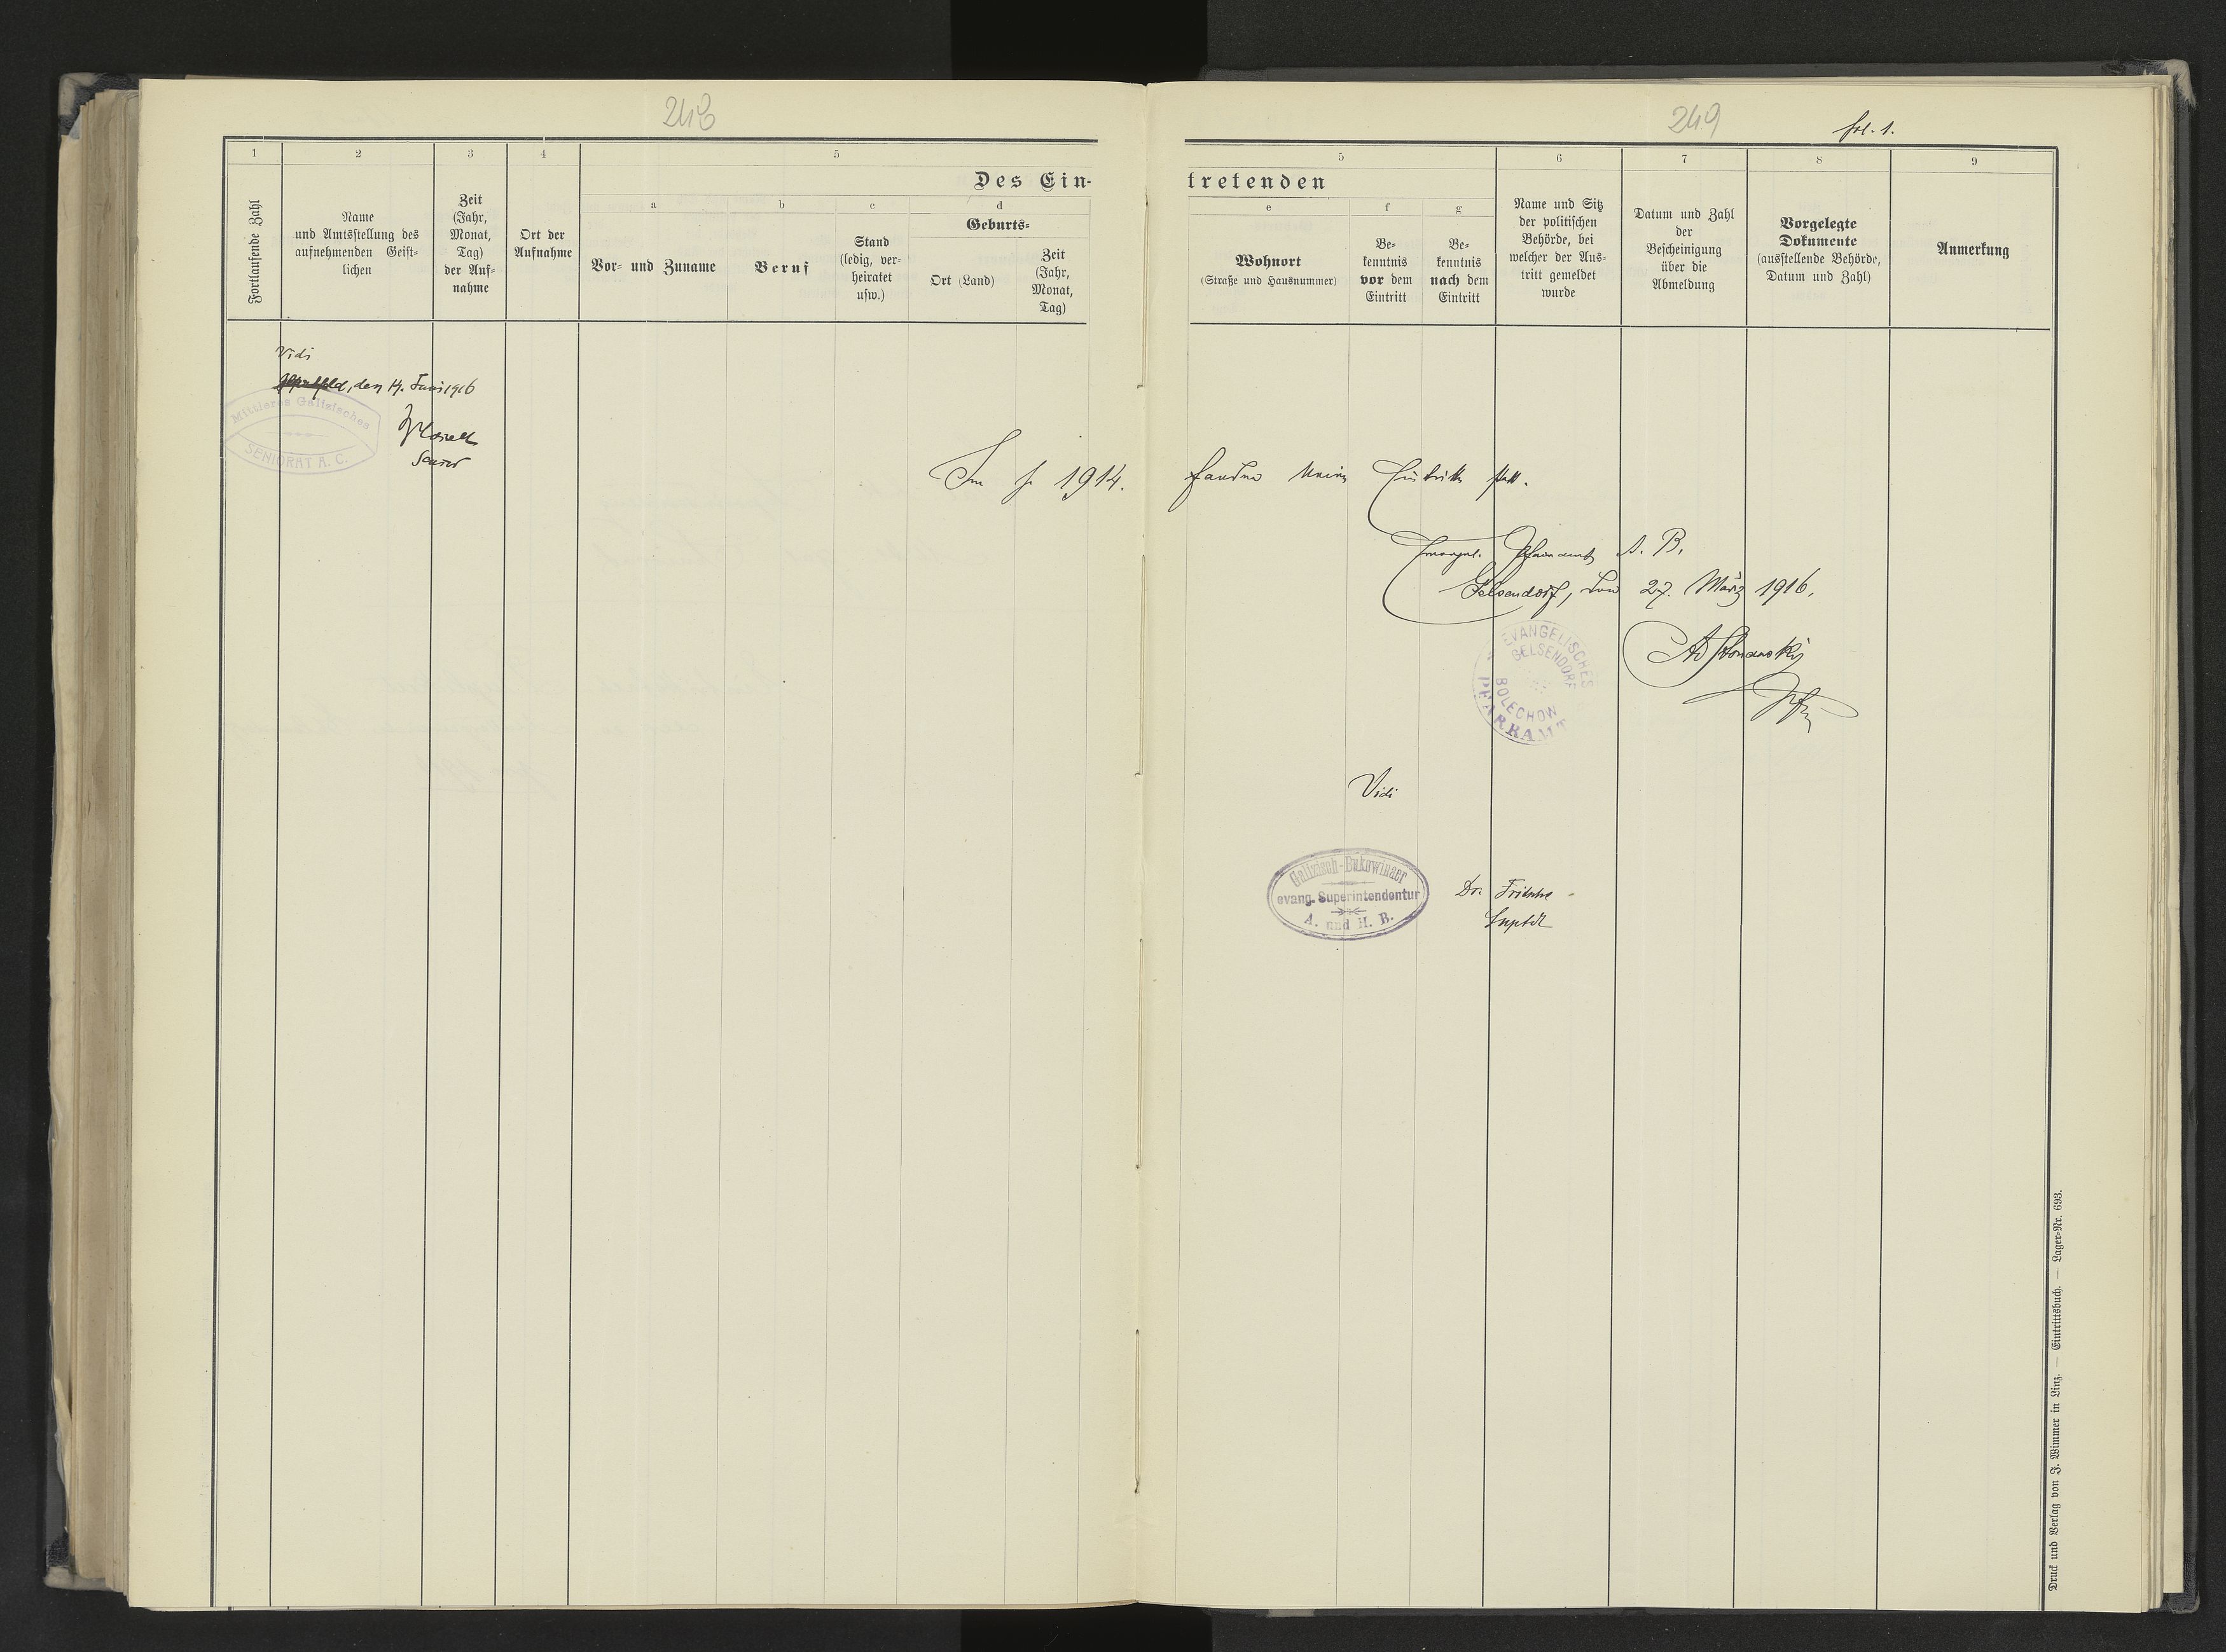 248
1
2
3
4
5
Des Ein-
Fortlaufende Zahl
Name
und Amtsstellung des
aufnehmenden Geist-
lichen
Zeit
(Jahr,
Monat,
Tag)
der Auf-
nahme
Ort der
Aufnahme
a
Vor- und Zuname
b
Beruf
c
Stand
(ledig, ver-
heiratet
usw.)
d
Geburts-
Ort (Land)
Zeit
(Jahr,
Monat,
Tag)
Vidi
den 14. Juni 1916
Mittleres Galizisches
SENIORAT A. C.
Senior
Im J. 1914.
249
fol. 1.
5
6
7
8
9
tretenden
e
Wohnort
(Straße und Hausnummer)
f
Be-
kenntnis
vor dem
Eintritt
g
Be-
kenntnis
nach dem
Eintritt
Name und Sitz
der politischen
Behörde, bei
welcher der Aus-
tritt gemeldet
wurde
Datum und Zahl
der
Bescheinigung
über die
Abmeldung
Vorgelegte
Dokumente
(ausstellende Behörde,
Datum und Zahl)
Anmerkung
fanden keine Eintritte statt.
Evangel. Pfarramt A. B.
Gelsendorf, den 27. März 1916.
EVANGELISCHES
GELSENDORF
BOLECHOW
PFARRAMT
Vidi
Galizisch-Bukowinaer
evang. Superintendentur
A. und H. B.
Dr. Fritsche
Suptdt
Druck und Verlag von J. Wimmer in Linz. — Eintrittsbuch. — Lager-Nr. 693.